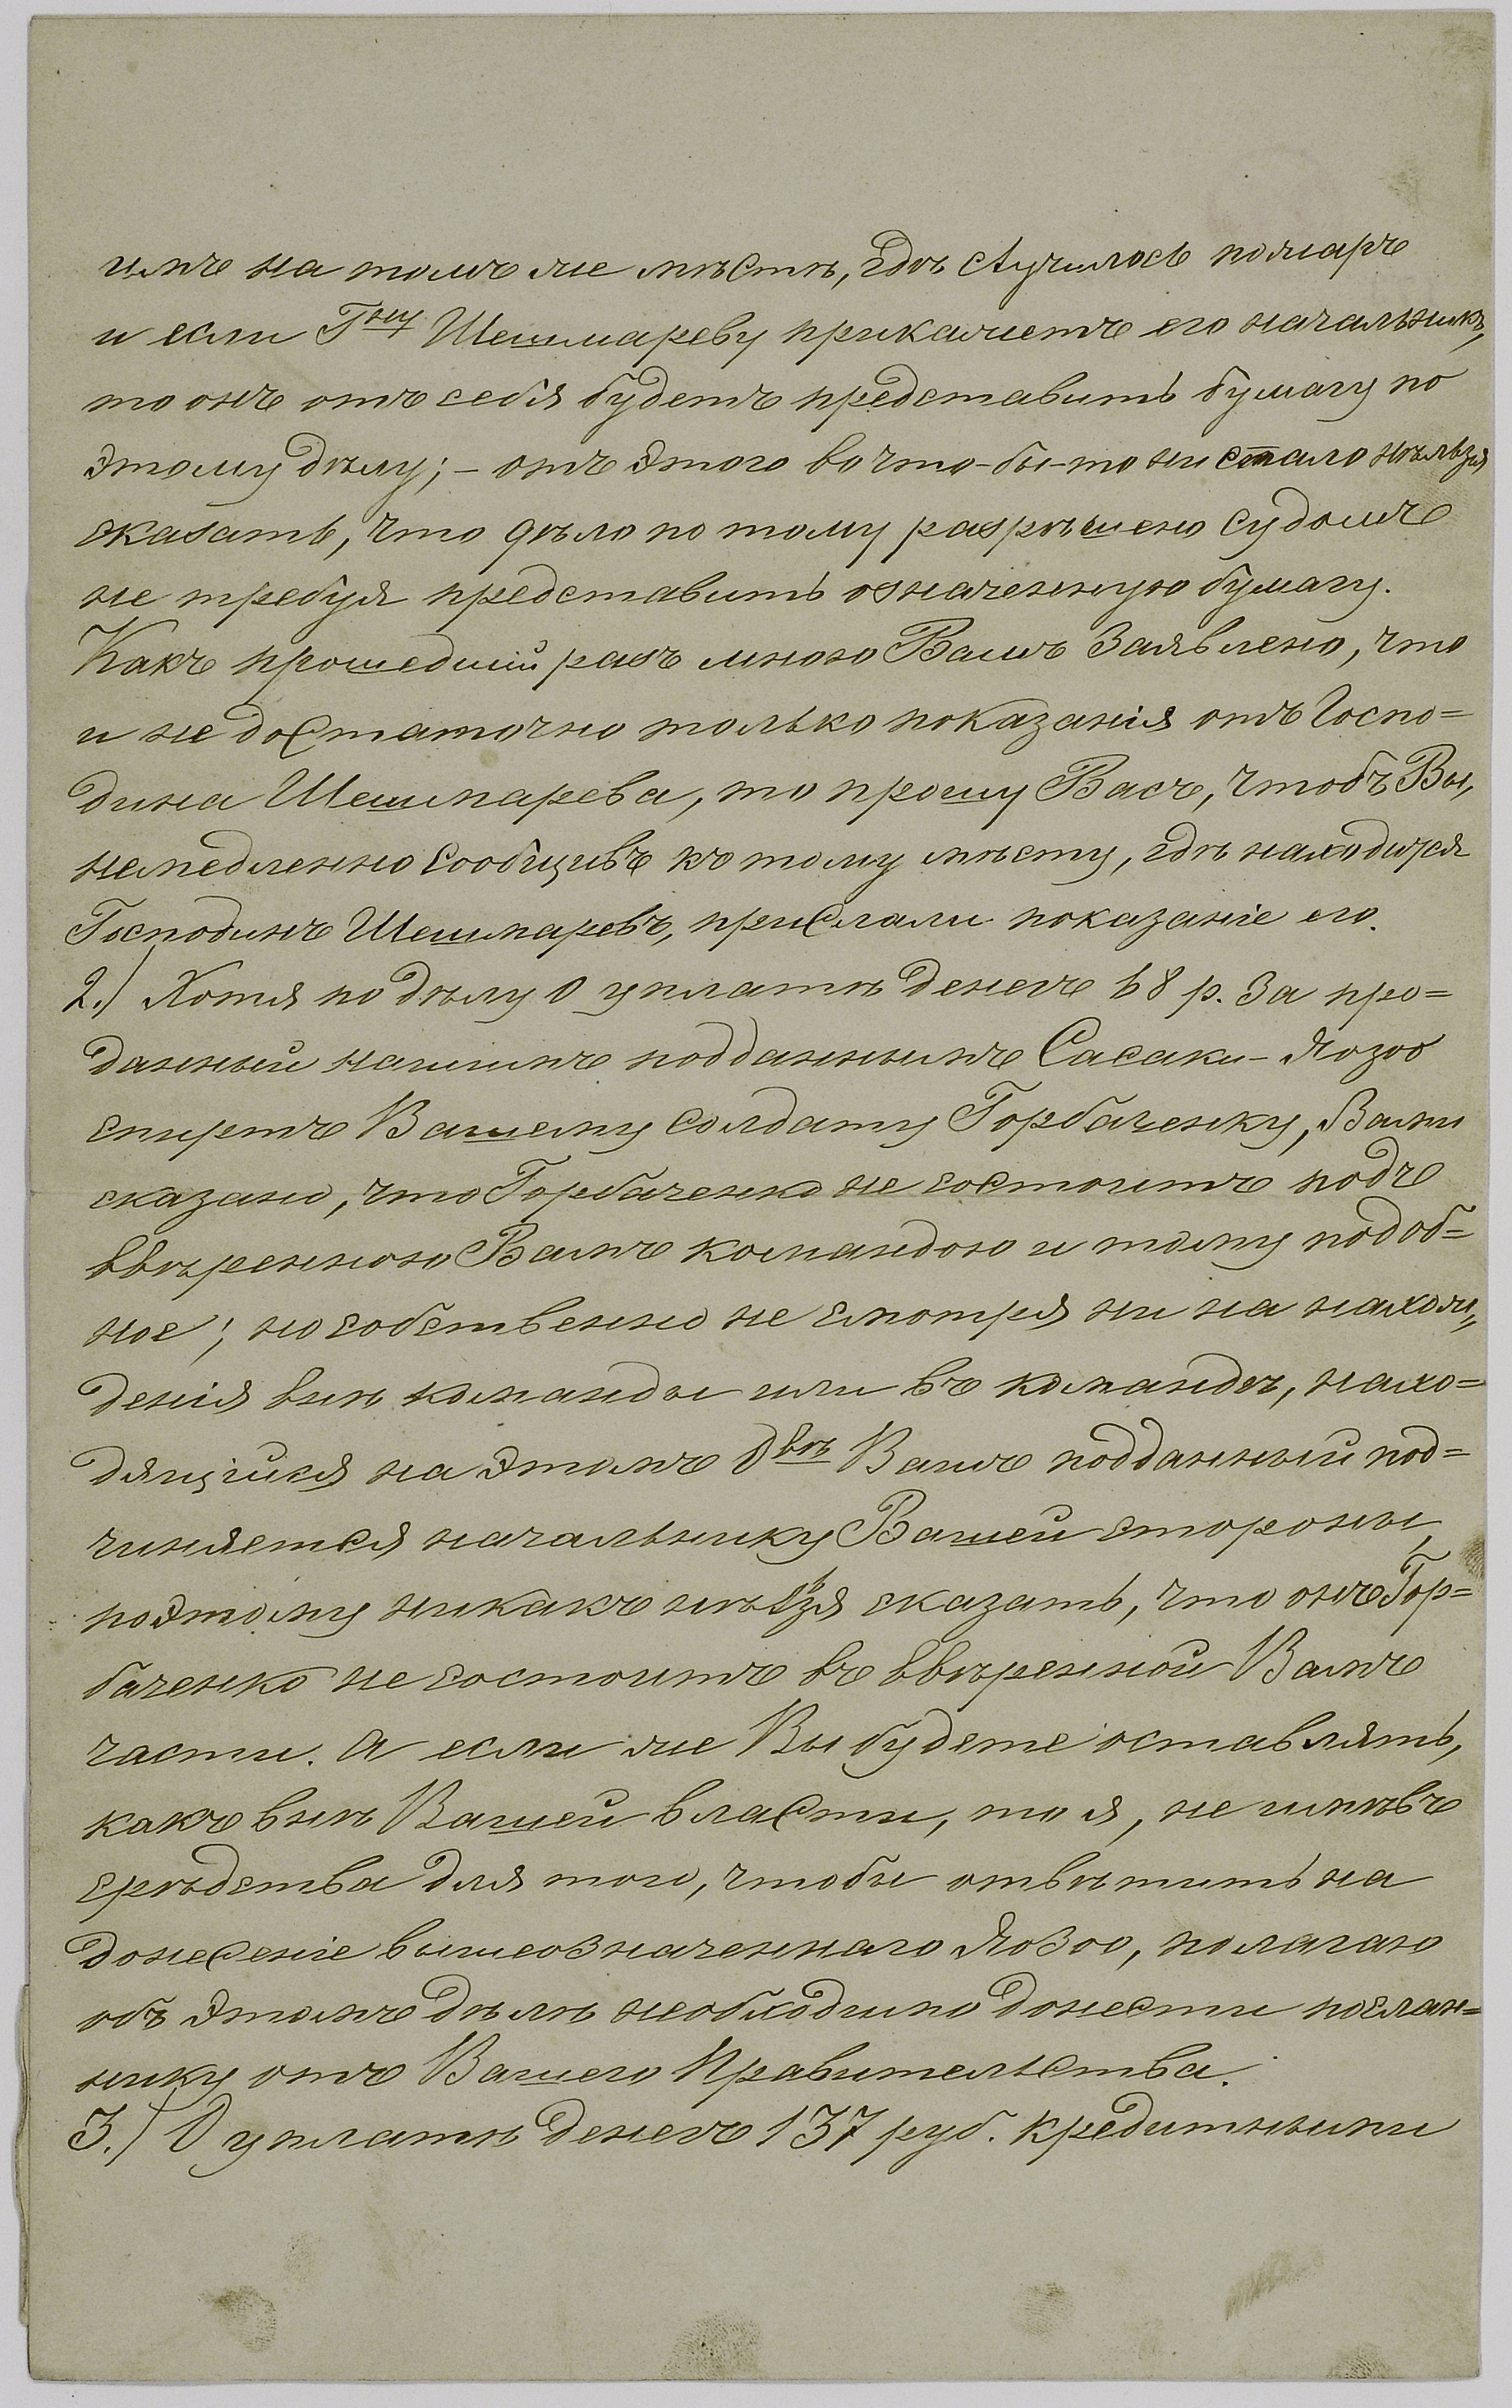 имъ на томъ же мѣстѣ, гдѣ случилось пожаръ
и если Гну Шешмареву прикажетъ его начальникъ,
то онъ отъ себя будетъ представить бумагу по
этому дѣлу; – отъ этого во что-бы-то ни стало нѣльзя
сказать, что дѣло по тому разрѣшено судомъ
не требуя представить означенную бумагу.
Какъ прошедшій разъ мною Вамъ заявлено, что
и не достаточно только показанія отъ Госпо=
дина Шешмарева, то прошу Васъ, чтобъ Вы,
немедленно сообщивъ къ тому мѣсту, гдѣ находится
Господинъ Шешмаревъ, прислали показаніе его.
2.) Хотя по дѣлу о уплатѣ денегъ 68 р. за про=
данный нашимъ подданнымъ Сасаки-Яозоо
спиртъ Вашему солдату Горбаченку, Вами
сказано, что Горбаченко не состоитъ подъ
ввѣренною Вамъ командою и тому подоб=
ное; но собственно не смотря ни на нахож„
денія внѣ команды или въ командѣ, нахо=
дящійся на этомъ Овѣ Вашъ подданный под=
чиняется начальнику Вашей стороны,
поэтому никакъ нѣльзя сказать, что онъ Гор=
баченко не состоитъ въ ввѣренной Вамъ
части. А если же Вы будете оставлять,
какъ внѣ Вашей власти, то я, не имѣвъ
срѣдства для того, чтобы отвѣтить на
донесеніе вышеозначеннаго Яозоо, полагаю
объ этомъ дѣлѣ необходимо донести послан=
нику отъ Вашего Правительства.
3.) О уплатѣ денегъ 137 руб. кредитными